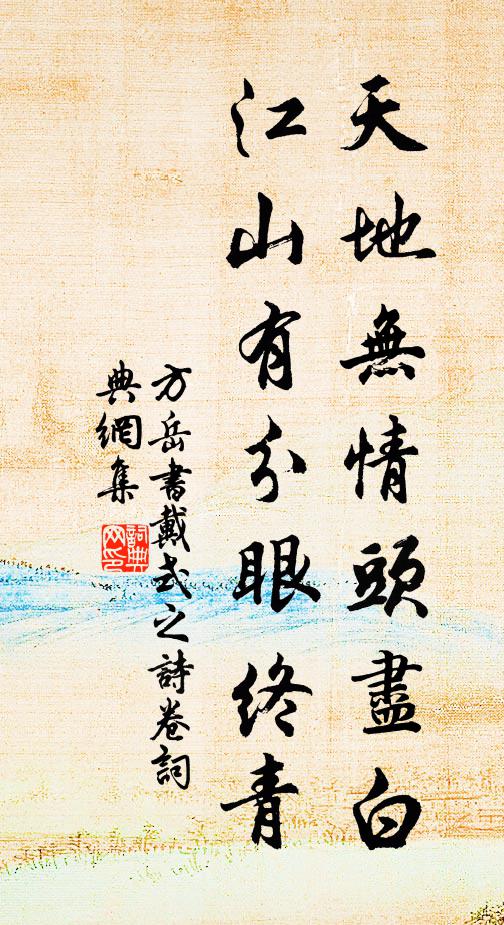 天地無情頭盡白
江山有分眼終青
方岳書戴式之詩卷詞
典網集
詞典網印